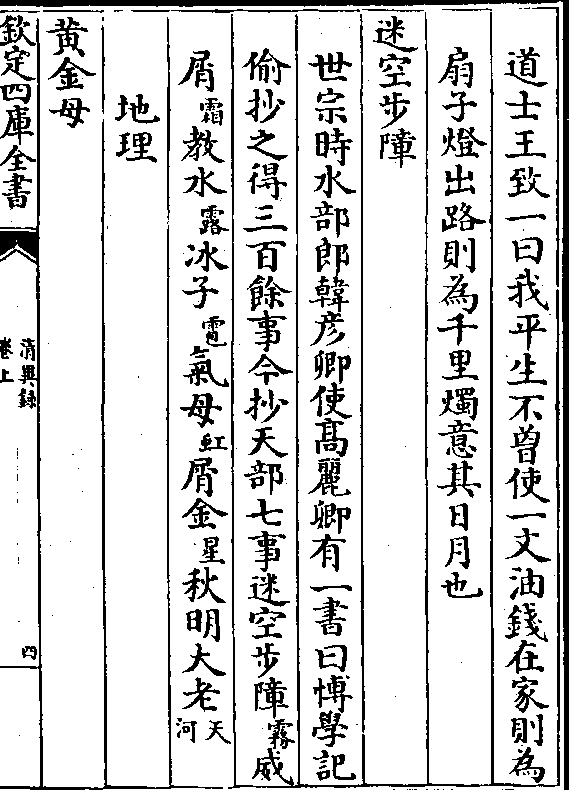 道士王致一曰我平生不曾使一文油錢在家則為
扇子燈出路則為千里燭意其日月也
迷空步障
世宗時水部郎韓彥卿使高麗卿有一書曰博學記
偷抄之得三百餘事今抄天部七事迷空步障霧威
屑霜教水露冰子雹氣母虹屑金星秋明大老天河
地理
黃金母
欽定四庫全書
清異錄
卷上
四